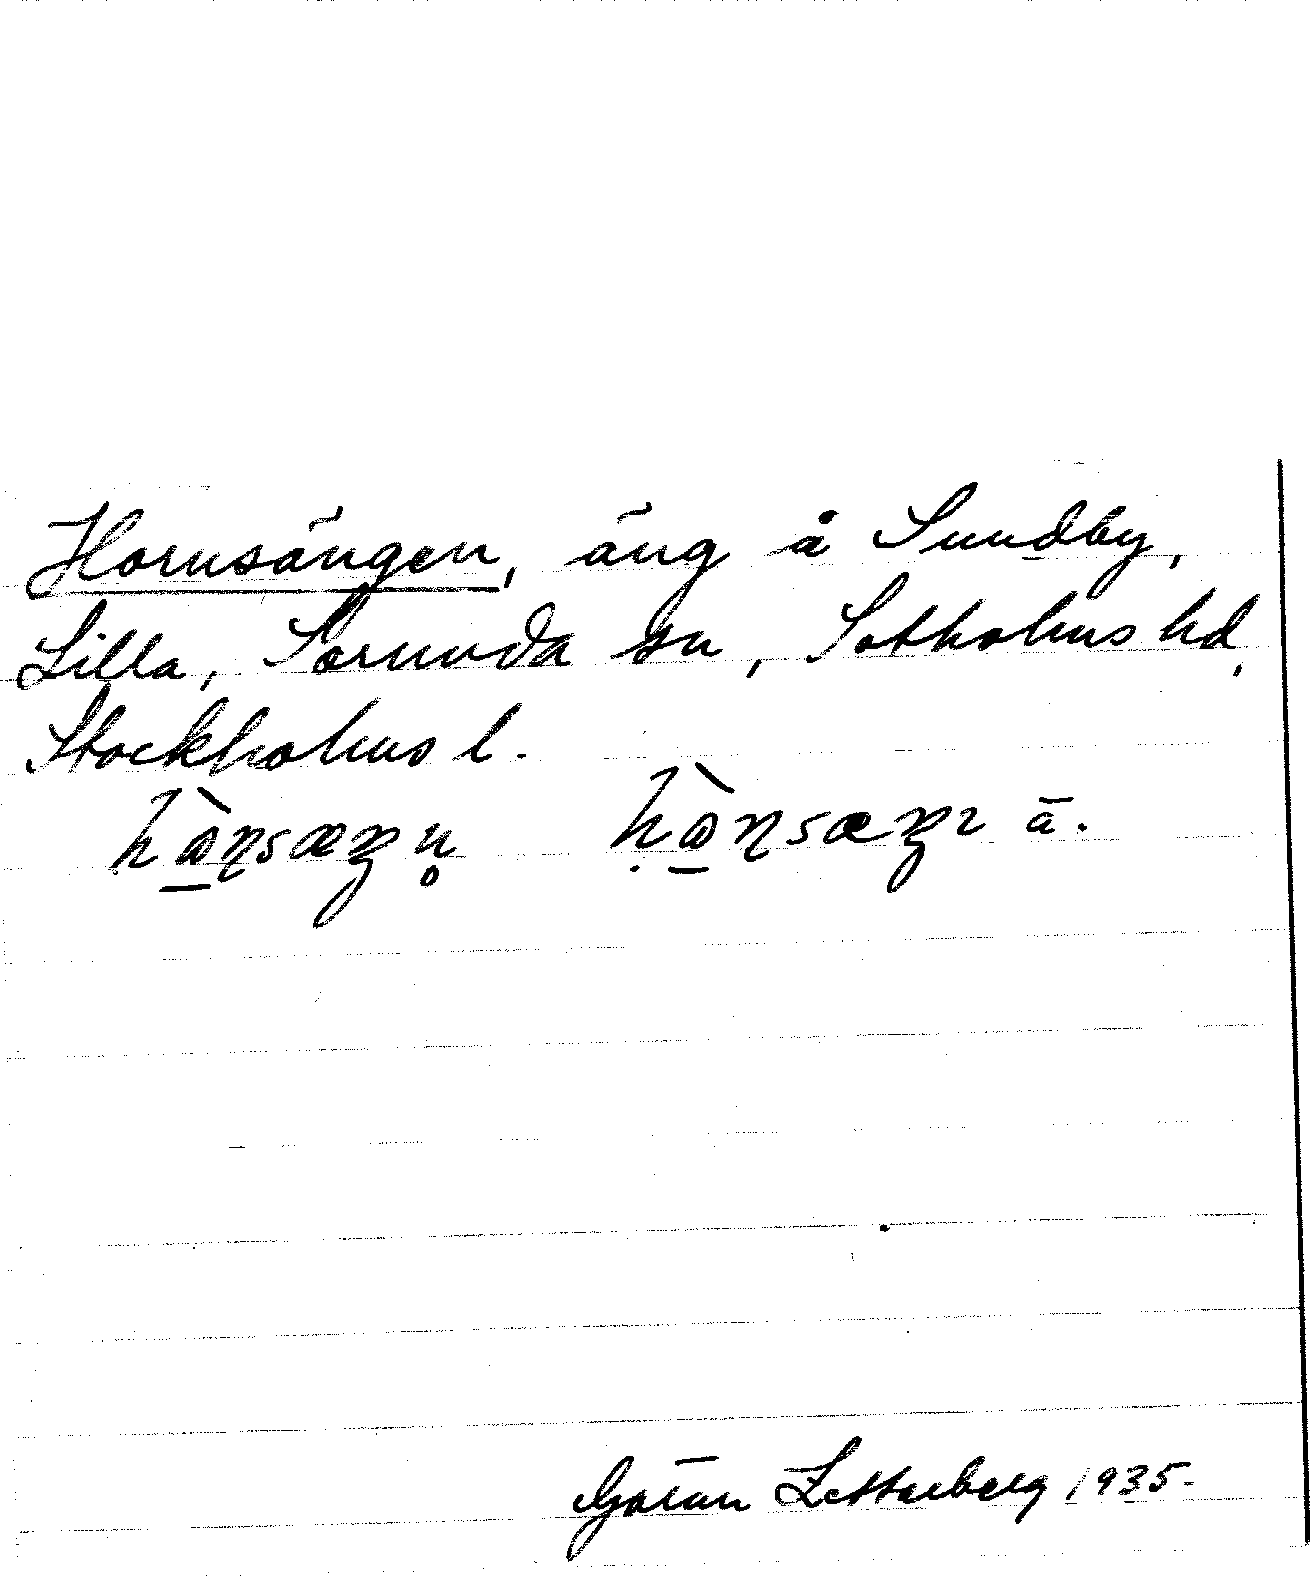 Hornsängen, äng å Sundby,
Lilla, Sorunda sn, Sotholms hd,
Stockholms l.
Göran Zetterberg 1935.